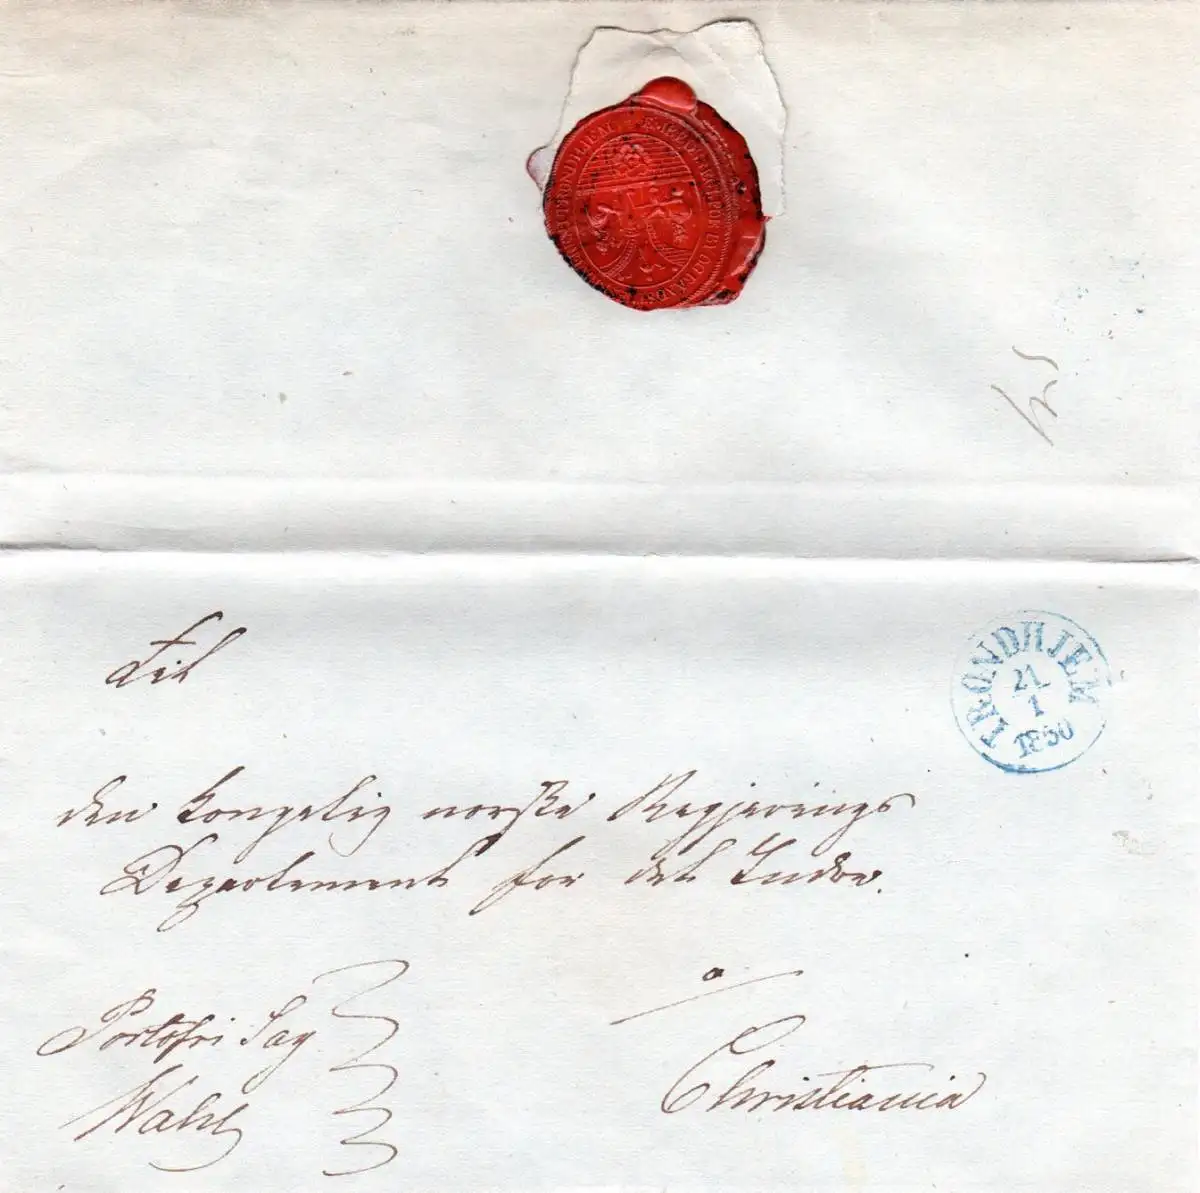 TRONDHJEM
21
1
1850
Til
den kongelig norske Regjerings
Departement for det Indre.
a
Portofri Sag
Wahl
Christiania